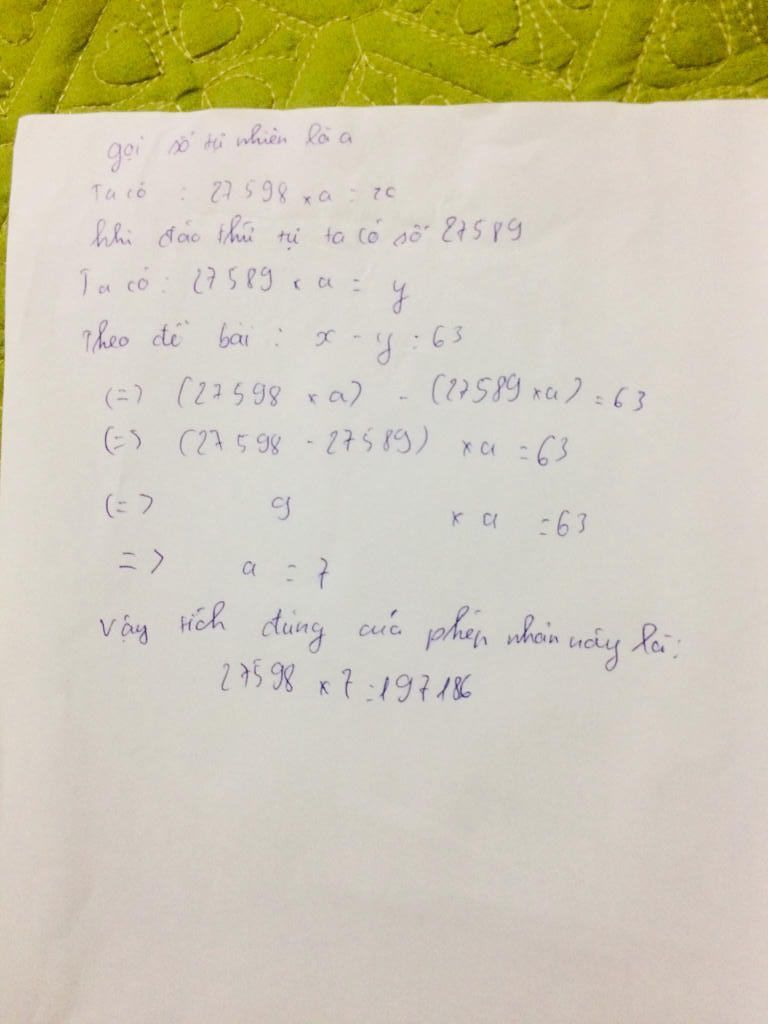 gọi số tự nhiên là a
Ta có : 27598 x a = x
khi đảo thứ tự ta có số 27589
Ta có : 27589 x a = y
Theo đề bài : x - y = 63
(=> (27598 x a) - (27589 x a) = 63
(=> (27598 - 27589) x a = 63
(=> 9 x a = 63
=> a = 7
Vậy tích đúng của phép nhân này là :
27598 x 7 = 197186